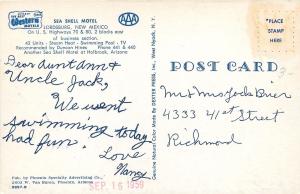 Western
MOTELS
SEA SHELL MOTEL
LORDSBURG, NEW MEXICO
On U. S. Highways 70 & 80, 2 blocks east
of business section.
42 Units - Steam Heat - Swimming Pool - TV
Recommended by Duncan Hines Phone 641 & 640
Another Sea Shell Motel at Holbrook, Arizona
AAA
PLACE
STAMP
HERE
POST CARD
Dear Aunt Ann &
Uncle Jack,
We went
swimming today.
had fun.
Love
Nancy
SEP 16 1959
Pub. by Phoenix Specialty Advertising Co.
Genuine Natural Color Made By DEXTER PRESS, INC. West Nyack, N. Y.
Mr & Mrs Jack Brier
4333 41st Street
Richmond